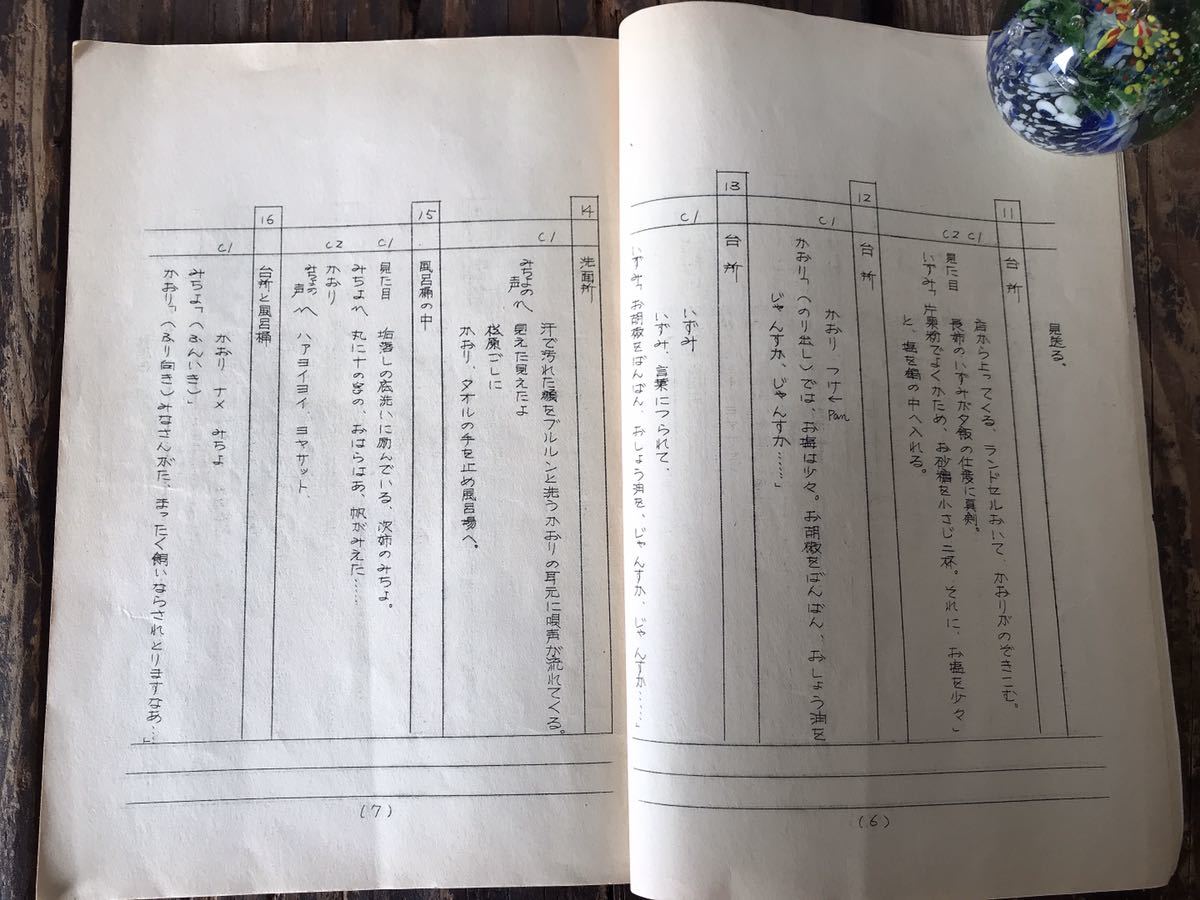 見送る。
11
台所
C1
店から上ってくる、ランドセルおいて、かおりがのぞきこむ。
C2
見た目 長姉のいずみが夕飯の仕度に真剣。
いずみ「片栗粉でよくかため、お砂糖を小さじ二杯。それに、お塩を少々」
と、塩を鍋の中へ入れる。
12
台所
C1
かおり つけ← Pan
かおり「(のり出し)では、お塩は少々。お胡椒をばんばん、おしょう油を
じゃんすか、じゃんすか……」
13
台所
C1
いずみ
いずみ、言葉につられて、
いずみ「お胡椒をばんばん、おしょう油を、じゃんすか、じゃんすか……」
(6)
14
洗面所
C1
汗で汚れた顔をブルルンと洗うかおりの耳元に唄声が流れてくる。
みちよの声〽 見えた見えたよ
松原ごしに
かおり、タオルの手を止め風呂場へ。
15
風呂桶の中
C1
見た目 垢落しの底洗いに励んでいる、次姉のみちよ。
みちよ〽 丸に十の字の、おはらはあ、帆がみえた……
C2
かおり
みちよの声〽 ハアヨイヨイ、ヨヤサット、
16
台所と風呂桶
C1
かおり ナメ みちよ
みちよ「(ふんいき)」
かおり「(ふり向き)みなさんがた、まったく飼いならされとりますなあ……」
(7)